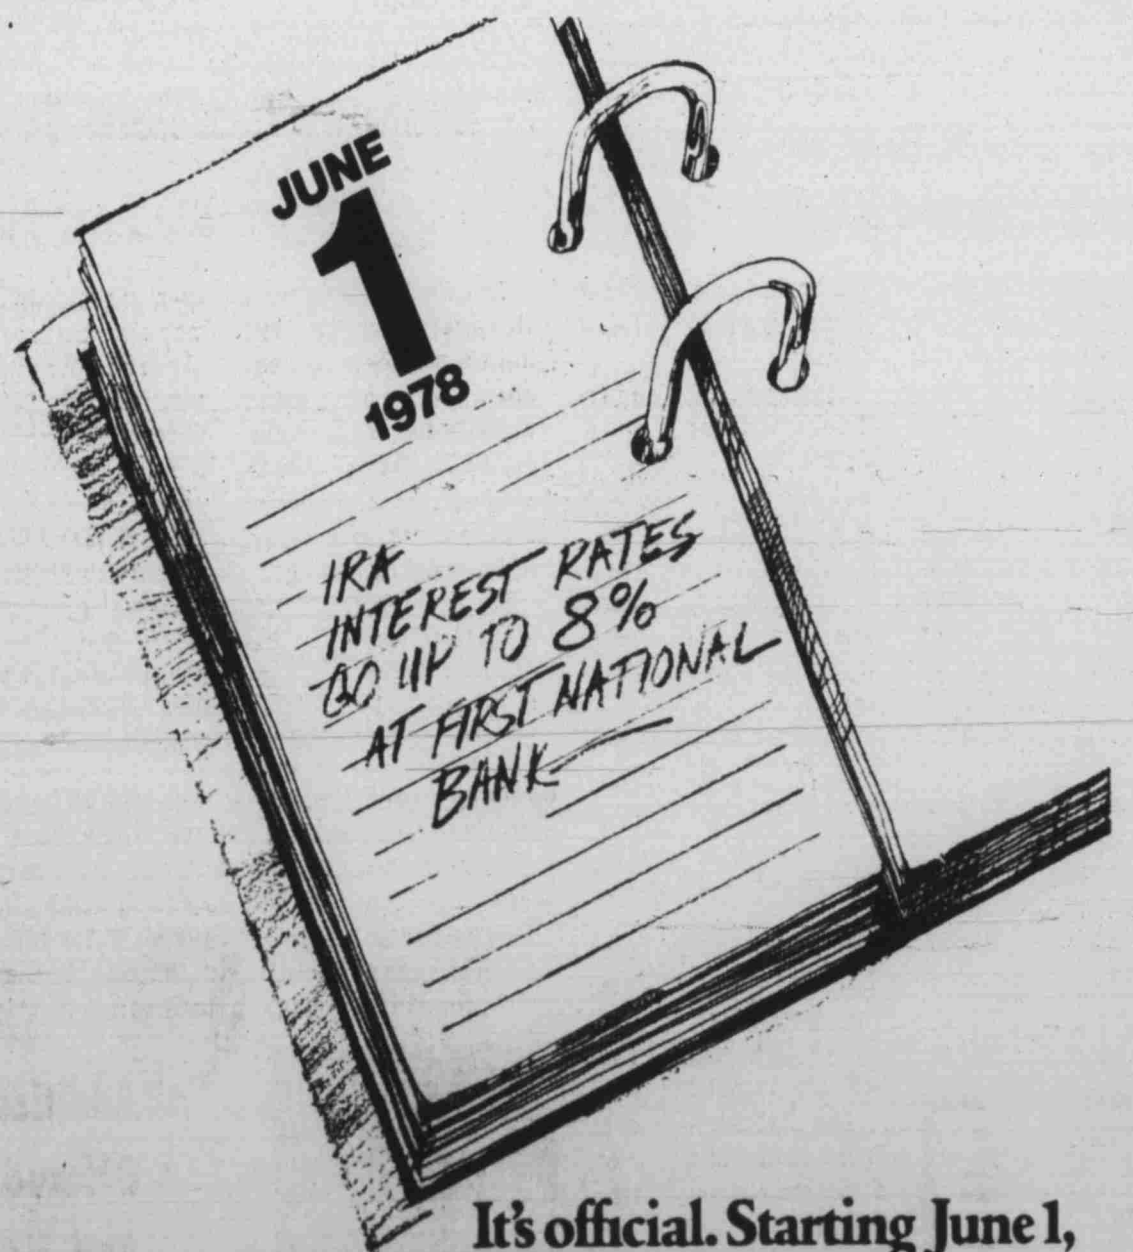 JUNE
1
1978
IRA
INTEREST RATES
GO UP TO 8%
AT FIRST NATIONAL
BANK
It's official. Starting June 1,